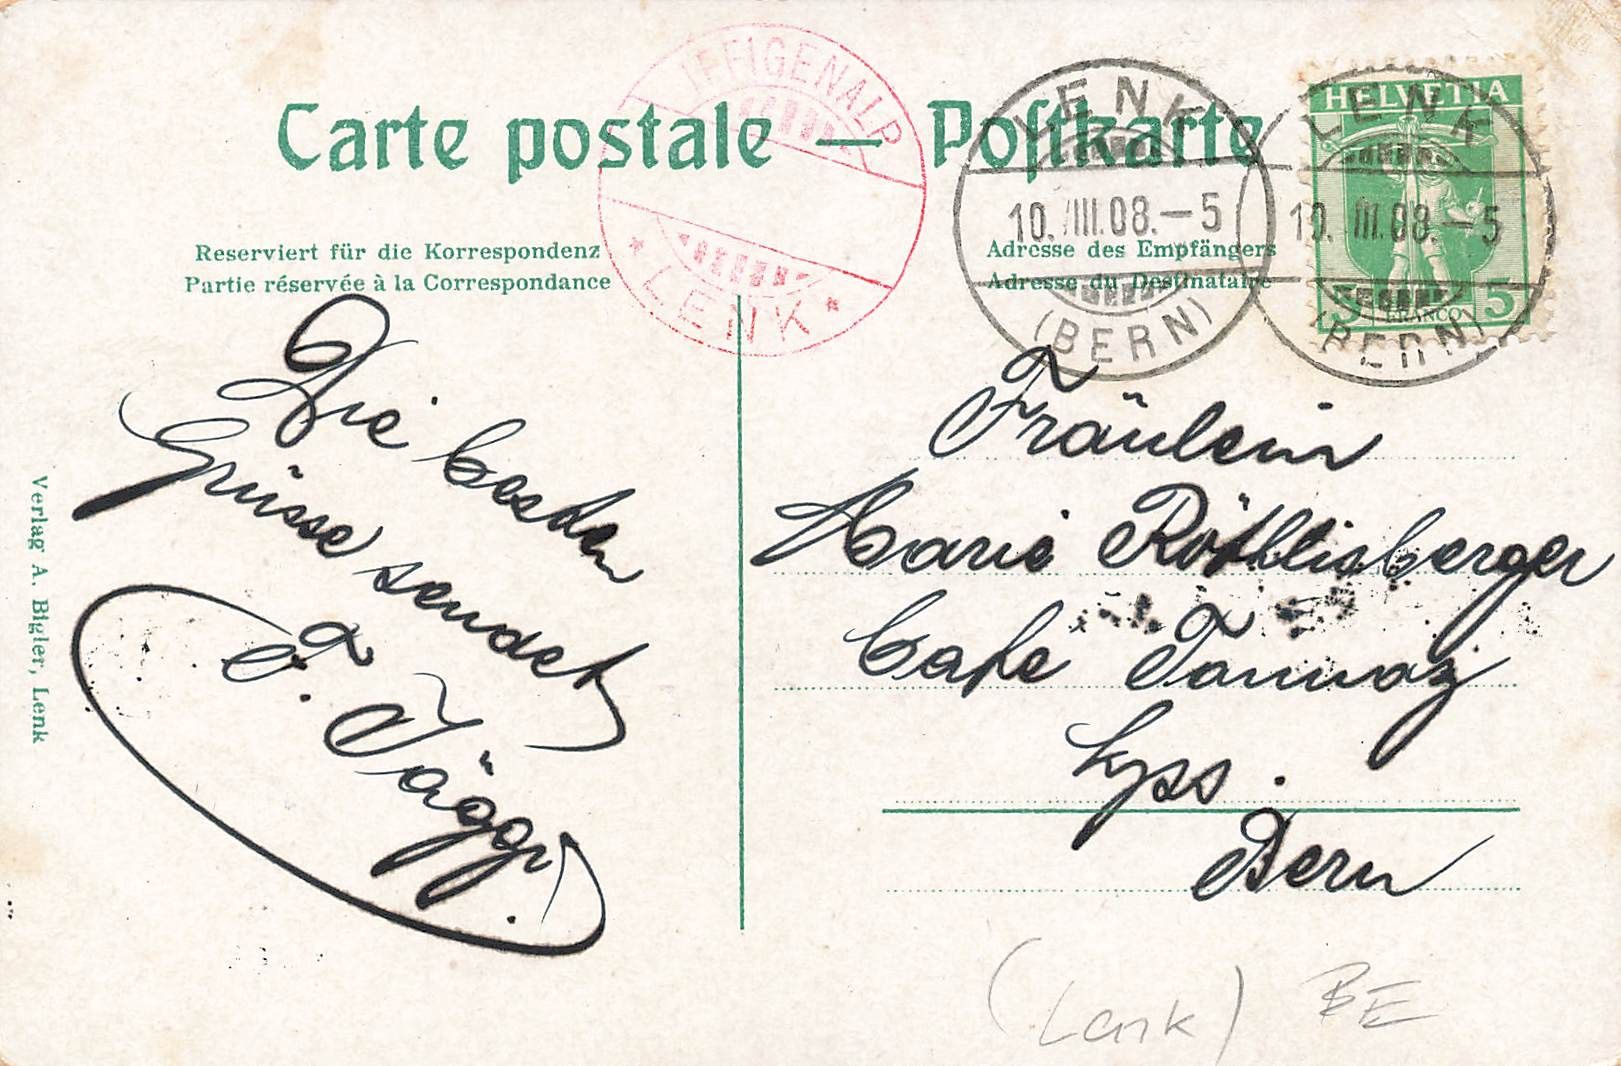 Carte postale — Postkarte
IFFIGENALP
* LENK *
LENK
10. VIII. 08. — 5
(BERN)
LENK
10. VIII. 08. — 5
(BERN)
HELVETIA
5 FRANCO 5
Reserviert für die Korrespondenz
Partie réservée à la Correspondance
Adresse des Empfängers
Adresse du Destinataire
Die besten
Grüsse sendet
F. Jäggi.
Fräulein
Marie Röthlisberger
Cafe
Bern
Verlag A. Bigler, Lenk
(Lenk) BE